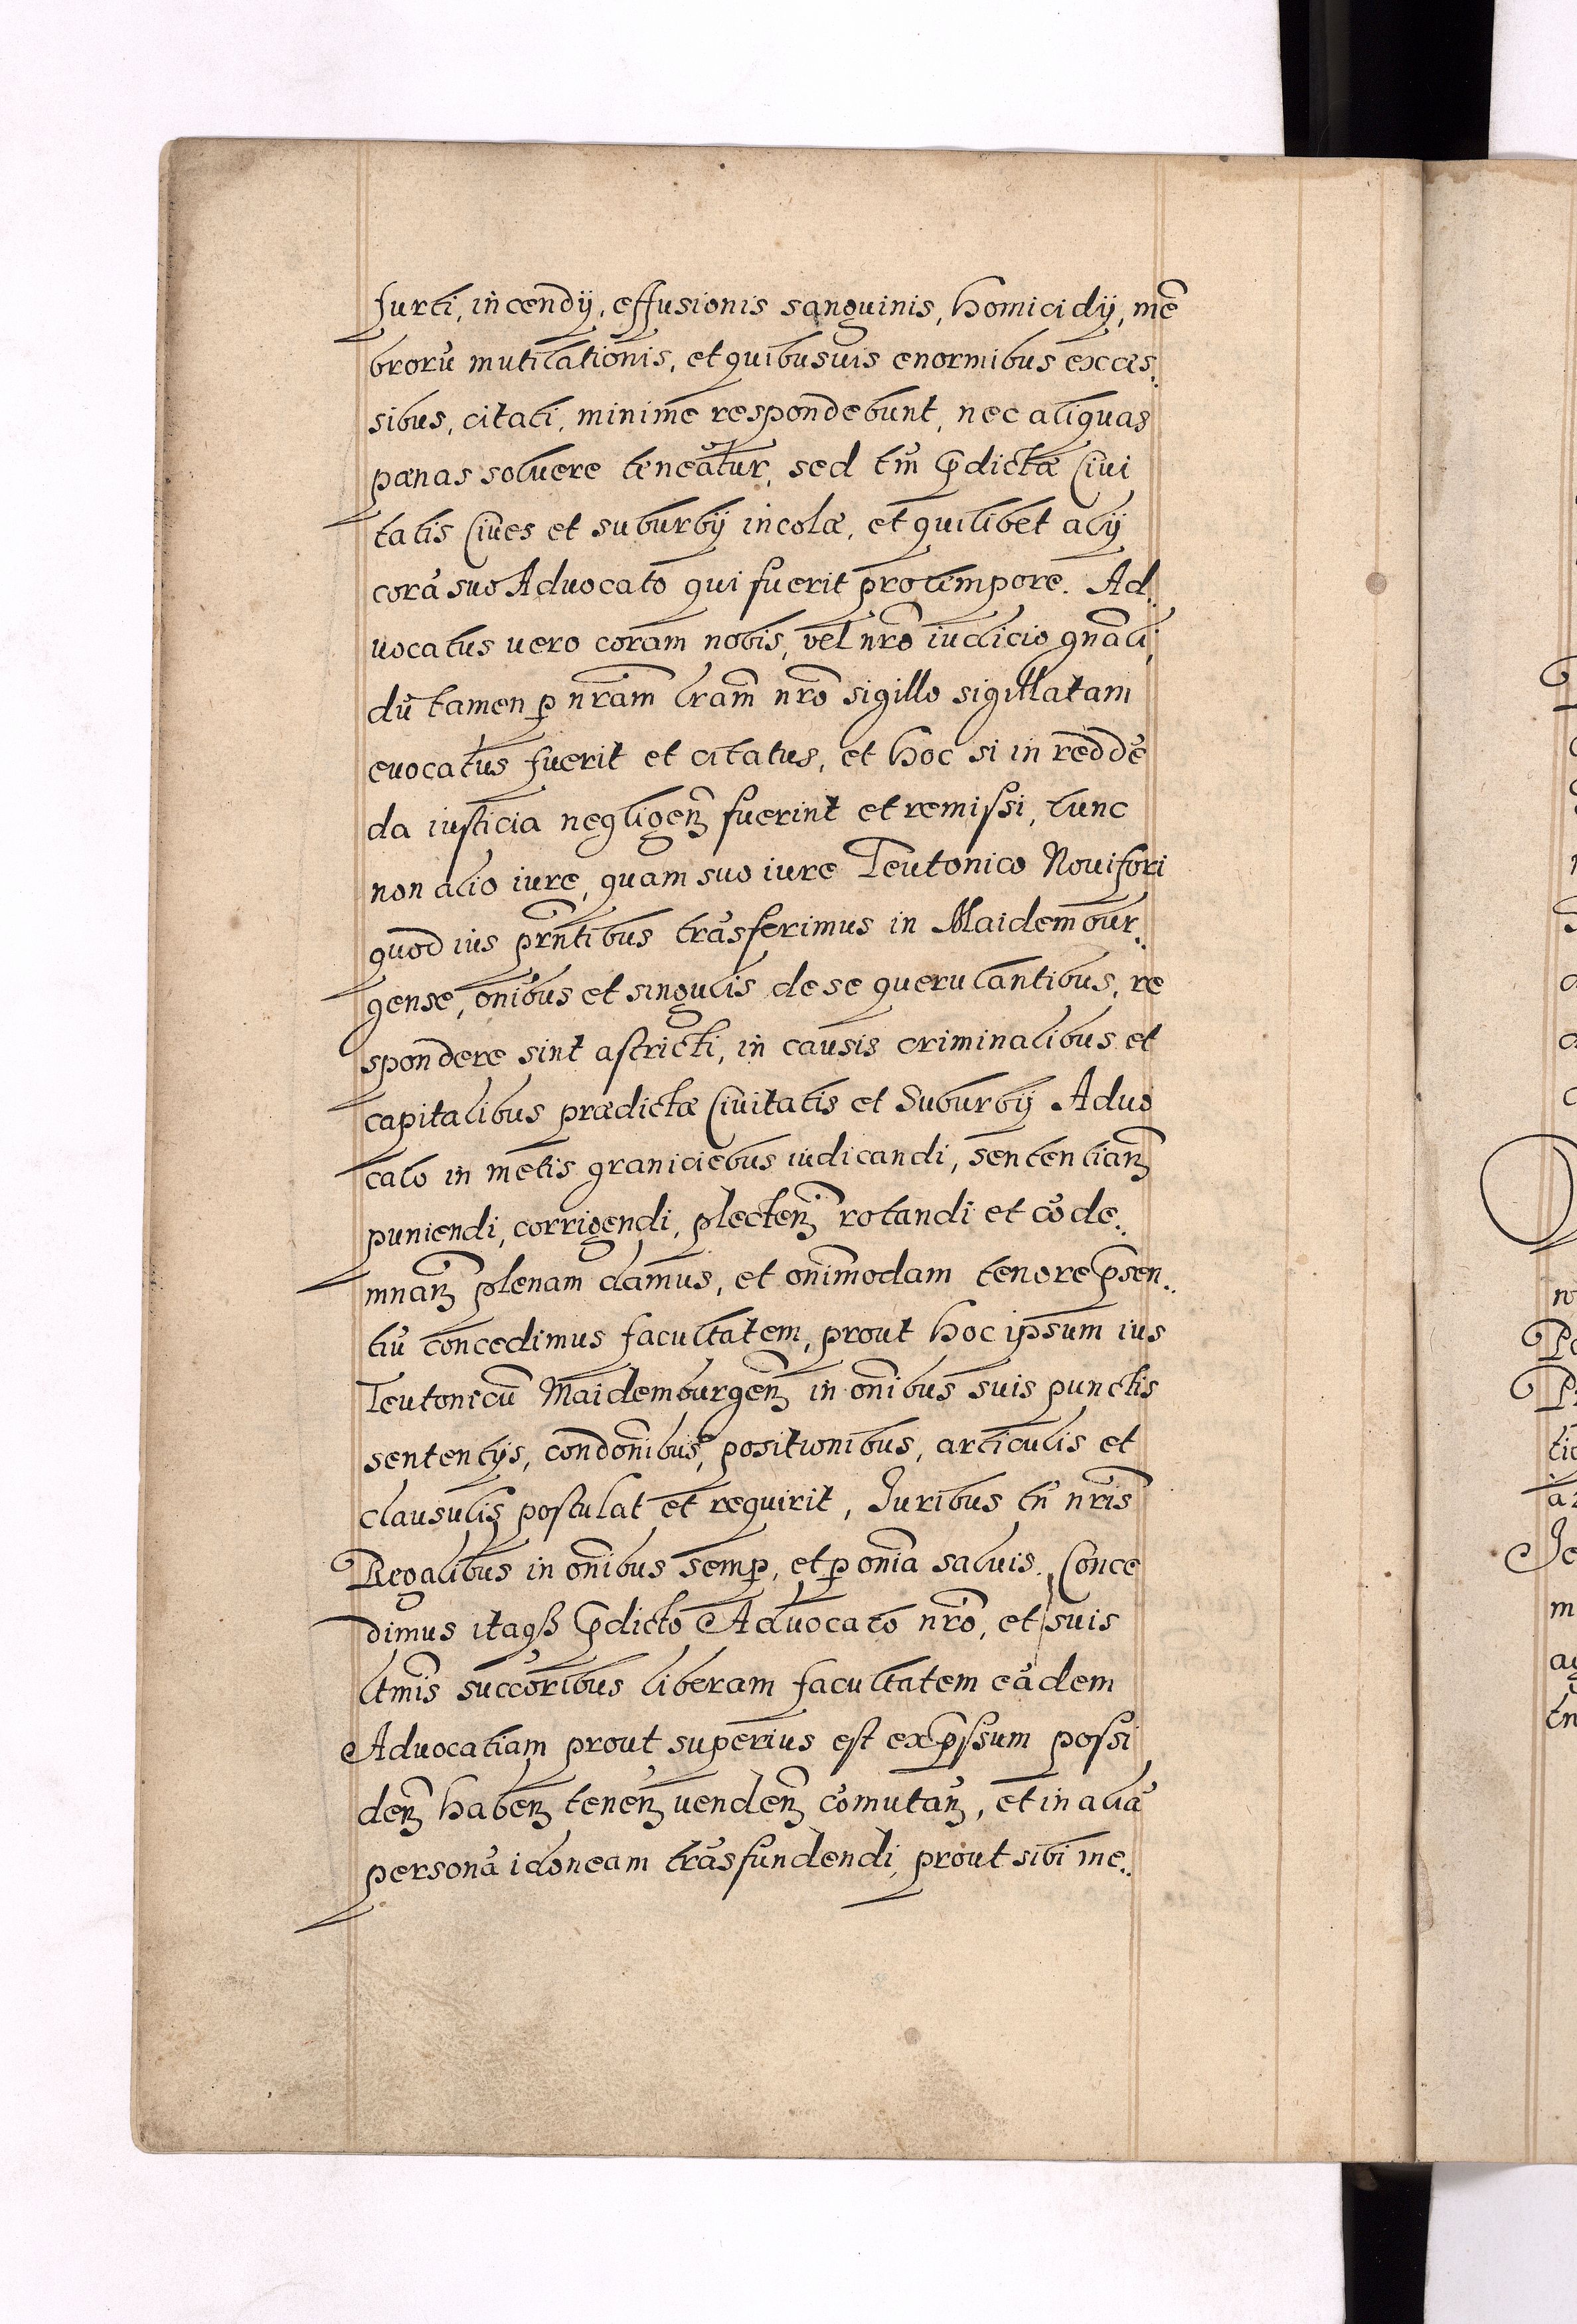 furti, incendÿ, effusionis sanguinis, homicidÿ, mē
brorū mutilationis, et quibusuis enormibus exces:
sibus, citati, minime respondebunt, nec aliquas
pænas soluere teneātur, sed tm̄ p̄dictæ Ciui
tatis Ciues et suburbÿ incolæ, et quilibet alÿ
corā suo Aduocato qui fuerit pro tempore. Ad:
uocatus uero coram nobis, vel nr̄o iudicio gn̄ali,
dū tamen ꝑ nr̄am lr̄am nr̄o sigillo sigillatam
euocatus fuerit et citatus, et hoc si in reddē
da iusticia negligen̄ fuerint et remissi, tunc
non alio iure, quam suo iure Teutonico Nouifori
quod ius pr̄ntibus trāsferimus in Maidembur:
gense, on̄ibus et singulis de se querulantibus, re
spondere sint astricti, in causis criminalibus et
capitalibus prædictæ Ciuitatis et Suburbÿ Aduo
cato in metis graniciebus iudicandi, sententian̄
puniendi, corrigendi, plecten̄ rotandi et cōde:
mnan̄ plenam damus, et on̄imodam tenore p̄sen:
tiū concedimus facultatem, prout hoc ipsum ius
Teutonicū Maidemburgen̄ in on̄ibus suis punctis
sententÿs, condōnibus, positionibus, articulis et
clausulis postulat et requirit, Iuribus tn̄ nr̄is
Regalibus in on̄ibus semꝑ, et ꝑ on̄ia saluis. Conce
dimus itaqꝫ p̄dicto Aduocato nr̄o, et suis
ltm̄is succōribus liberam facultatem eādem
Aduocatiam prout superius est exp̄ssum possi
den̄ haben̄ tenen̄ uenden̄ cōmutan̄, et in aliā
personā idoneam trāsfundendi, prout sibi me: